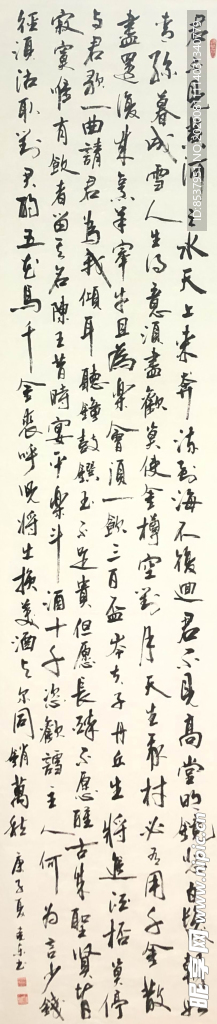 君不見黃河之水天上來奔流到海不復迴君不見高堂明鏡悲白髮朝如
青絲暮成雪人生得意須盡歡莫使金樽空對月天生我材必有用千金散
盡還復來烹羊宰牛且為樂會須一飲三百盃岑夫子丹丘生將進酒杯莫停
与君歌一曲請君為我傾耳聽鐘鼓饌玉不足貴但愿長醉不愿醒古來聖賢皆
寂寞惟有飲者留其名陳王昔時宴平樂斗酒十千恣歡謔主人何為言少錢
徑須沽取對君酌五花馬千金裘呼兒將出換美酒与尔同銷萬愁
庚子夏書
昵图网 www.nipic.com